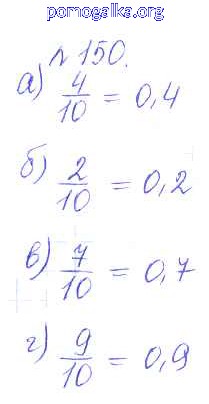 pomogalka.org
№ 150.
а) 4/10 = 0,4
б) 2/10 = 0,2
в) 7/10 = 0,7
г) 9/10 = 0,9